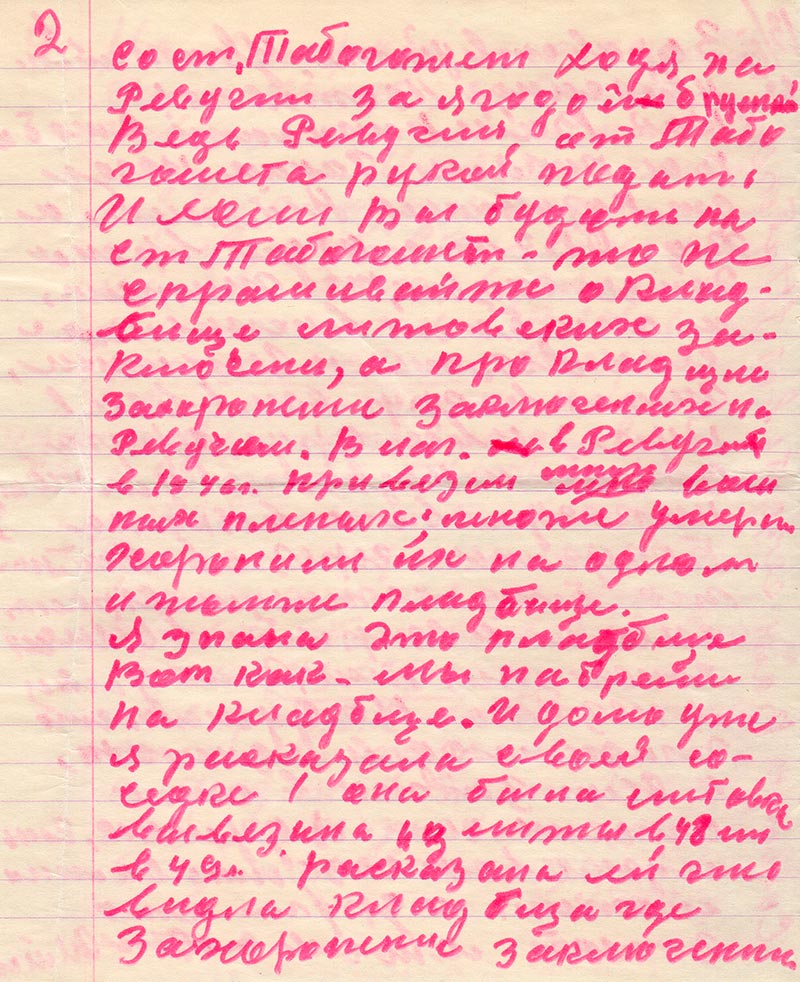 2
со ст. Табогашет ходя на
Ревучий за ягодой брусн
Ведь Ревучий от Табо
гашета рукой подать
И если вы будите на
ст Табогашет - то не
спрашивайте о клад-
бище литовских за-
ключени, а про клад ище
Захоронени заключеных на
Ревучем. В лаг. в Ревучий
в 194 г. привезли
пленых множе умерли
хоронили их на одном
и томже кладбище.
Я знала это кладбище
Вот как - мы набрели
на кладбище. И дома уже
я расказала своей со-
седке ( она была литовка
вывезина из литвы в 48 или
в 49г. расказала ей что
видла кладбища где
Захоронение заключении